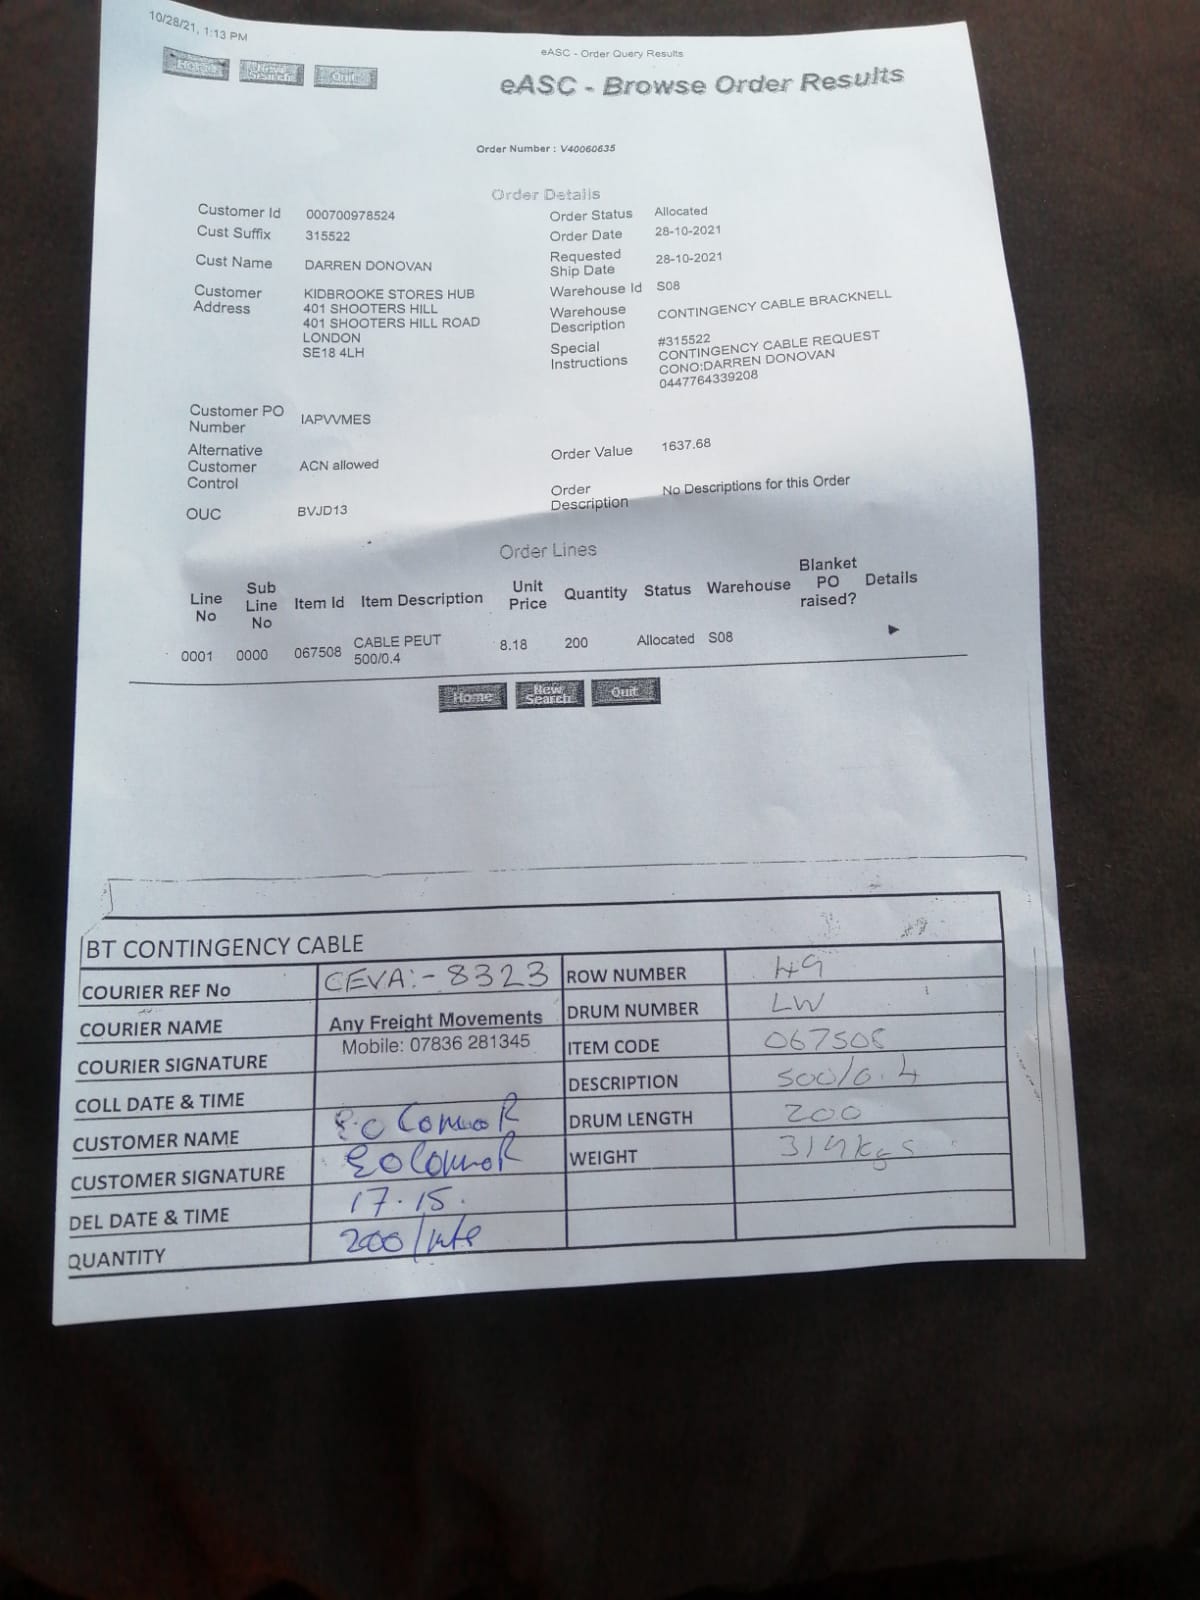 10/28/21, 1:13 PM
eASC - Order Query Results
Home New Search Quit
eASC - Browse Order Results
Order Number : V40060635
Order Details
Customer Id 000700978524
Cust Suffix 315522
Cust Name DARREN DONOVAN
Customer Address KIDBROOKE STORES HUB
401 SHOOTERS HILL
401 SHOOTERS HILL ROAD
LONDON
SE18 4LH
Order Status Allocated
Order Date 28-10-2021
Requested Ship Date 28-10-2021
Warehouse Id S08
Warehouse Description CONTINGENCY CABLE BRACKNELL
Special Instructions #315522
CONTINGENCY CABLE REQUEST
CONO:DARREN DONOVAN
0447764339208
Customer PO Number IAPVVMES
Alternative Customer Control ACN allowed
OUC BVJD13
Order Value 1637.68
Order Description No Descriptions for this Order
Order Lines
Line No Sub Line No Item Id Item Description Unit Price Quantity Status Warehouse Blanket PO raised? Details
0001 0000 067508 CABLE PEUT 500/0.4 8.18 200 Allocated S08
Home New Search Quit
BT CONTINGENCY CABLE
COURIER REF No CEVA:- 8323
COURIER NAME Any Freight Movements
Mobile: 07836 281345
COURIER SIGNATURE
COLL DATE & TIME
CUSTOMER NAME
CUSTOMER SIGNATURE
DEL DATE & TIME 17.15.
QUANTITY 200
ROW NUMBER 49
DRUM NUMBER LW
ITEM CODE 067508
DESCRIPTION 500/0.4
DRUM LENGTH 200
WEIGHT 319kgs